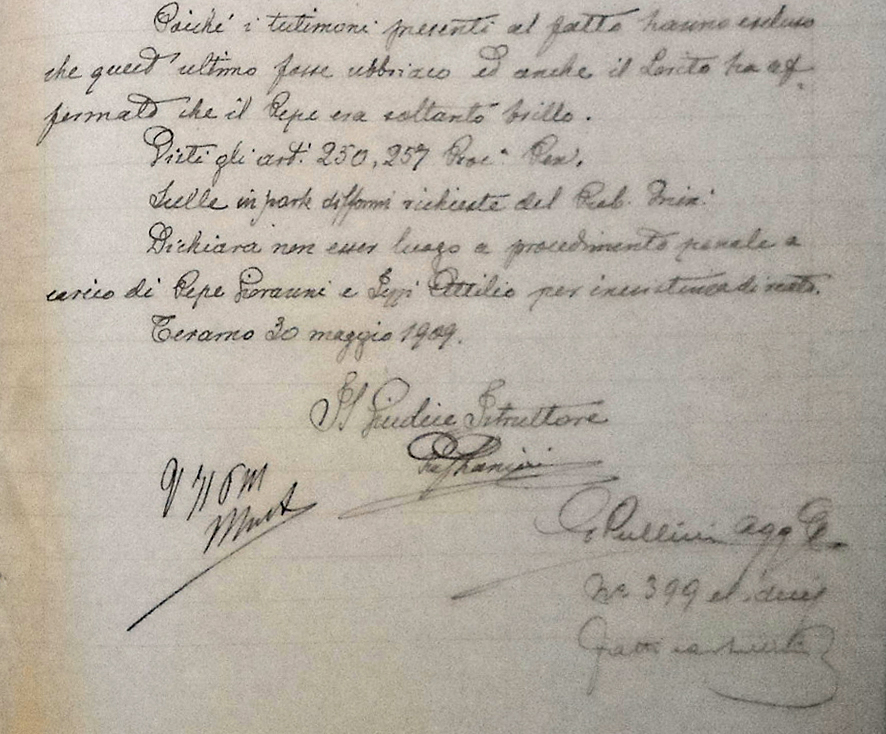 Poiché i testimoni presenti al fatto hanno escluso
che quest'ultimo fosse ubbriaco ed anche il Lorito ha af-
fermato che il Pepe era soltanto brillo.
Visti gli art. 250, 257 Proc. Pen.
Sulle in parte difformi richieste del Pub. Min.
Dichiara non esser luogo a procedimento penale a
carico di Pepe Giovanni e Attilio per inesistenza di reato.
Teramo 30 maggio 1909.
Il Giudice Istruttore
Pullini agg
Nº 399